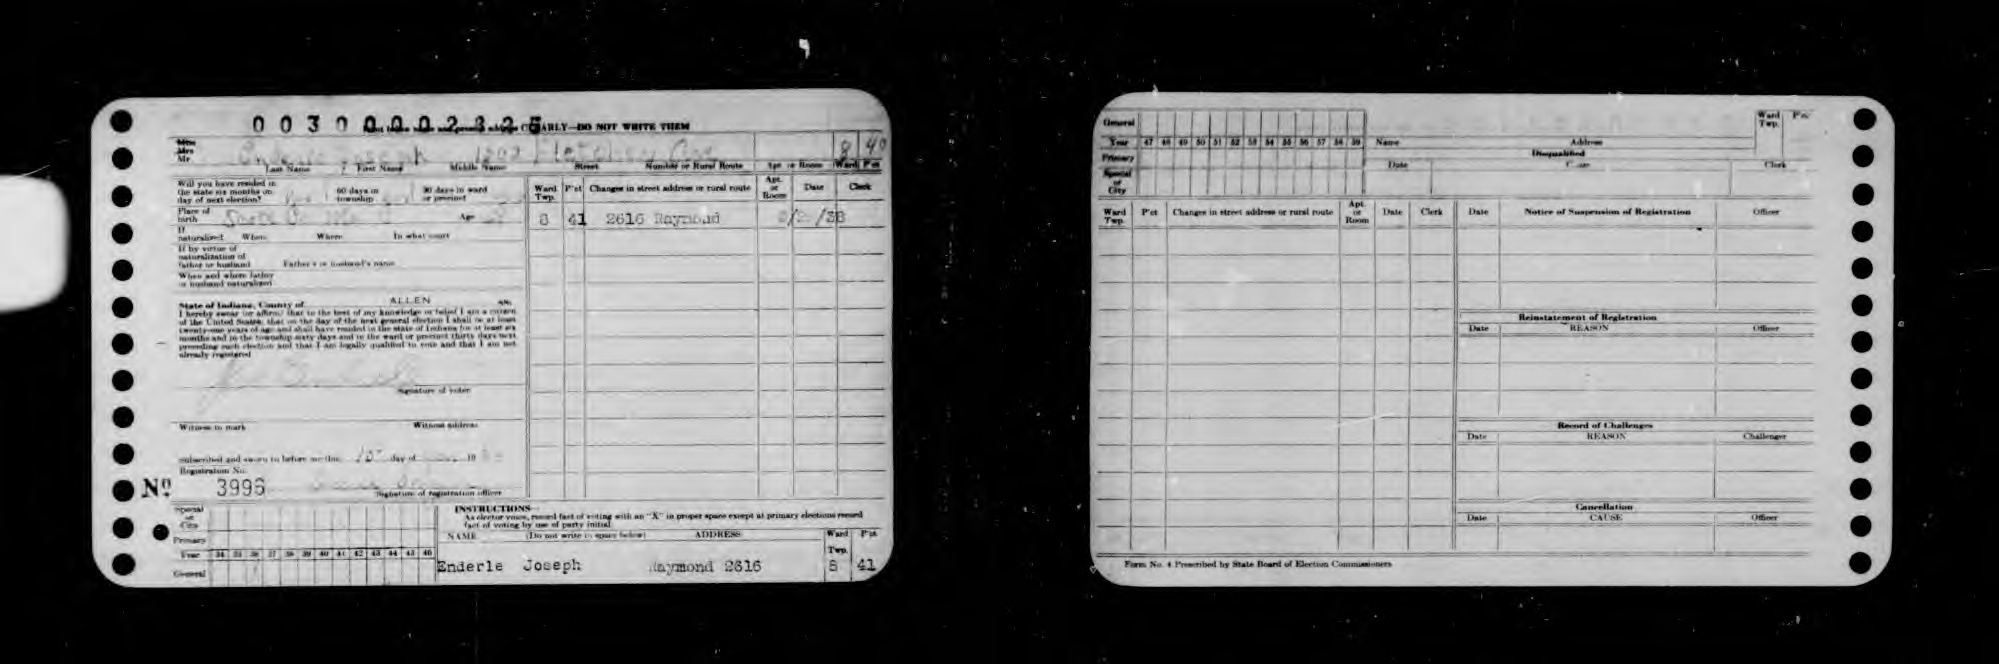 00300002325
CLEARLY—DO NOT WRITE THEM
Mrs
Mr
Enderle Joseph 8 40
Last Name First Name Middle Name Street Number or Rural Route Apt. or Room Ward P'ct
Will you have resided in
the state six months on 60 days in 30 days in ward
day of next election? township or precinct
Place of
birth Age
If
naturalized When Where In what court
If by virtue of
naturalization of
father or husband Father's or husband's name
When and where father
or husband naturalized
State of Indiana, County of ALLEN ss:
I hereby swear (or affirm) that to the best of my knowledge or belief I am a citizen
of the United States; that on the day of the next general election I shall be at least
twenty-one years of age and shall have resided in the state of Indiana for at least six
months and in the township sixty days and in the ward or precinct thirty days next
preceding such election and that I am legally qualified to vote and that I am not
already registered
Signature of voter
Witness to mark Witness address
Subscribed and sworn to before me this day of 19
Registration No.
Nº 3996
Signature of registration officer
Ward Twp. P'ct Changes in street address or rural route Apt. or Room Date Clerk
8 41 2616 Raymond /38
Special
or
City
Primary
Year 34 35 36 37 38 39 40 41 42 43 44 45 46
General
INSTRUCTIONS—
As elector votes, record fact of voting with an "X" in proper space except at primary elections record
fact of voting by use of party initial
NAME (Do not write in space below) ADDRESS Ward Twp. P'ct
Enderle Joseph Raymond 2616 8 41
General
Year 47 48 49 50 51 52 53 54 55 56 57 58 59
Primary
Special
or
City
Name Address
Ward
Twp. P'ct
Disqualified
Date Cause Clerk
Ward Twp. P'ct Changes in street address or rural route Apt. or Room Date Clerk
Date Notice of Suspension of Registration Officer
Reinstatement of Registration
Date REASON Officer
Record of Challenges
Date REASON Challenger
Cancellation
Date CAUSE Officer
Form No. 4 Prescribed by State Board of Election Commissioners